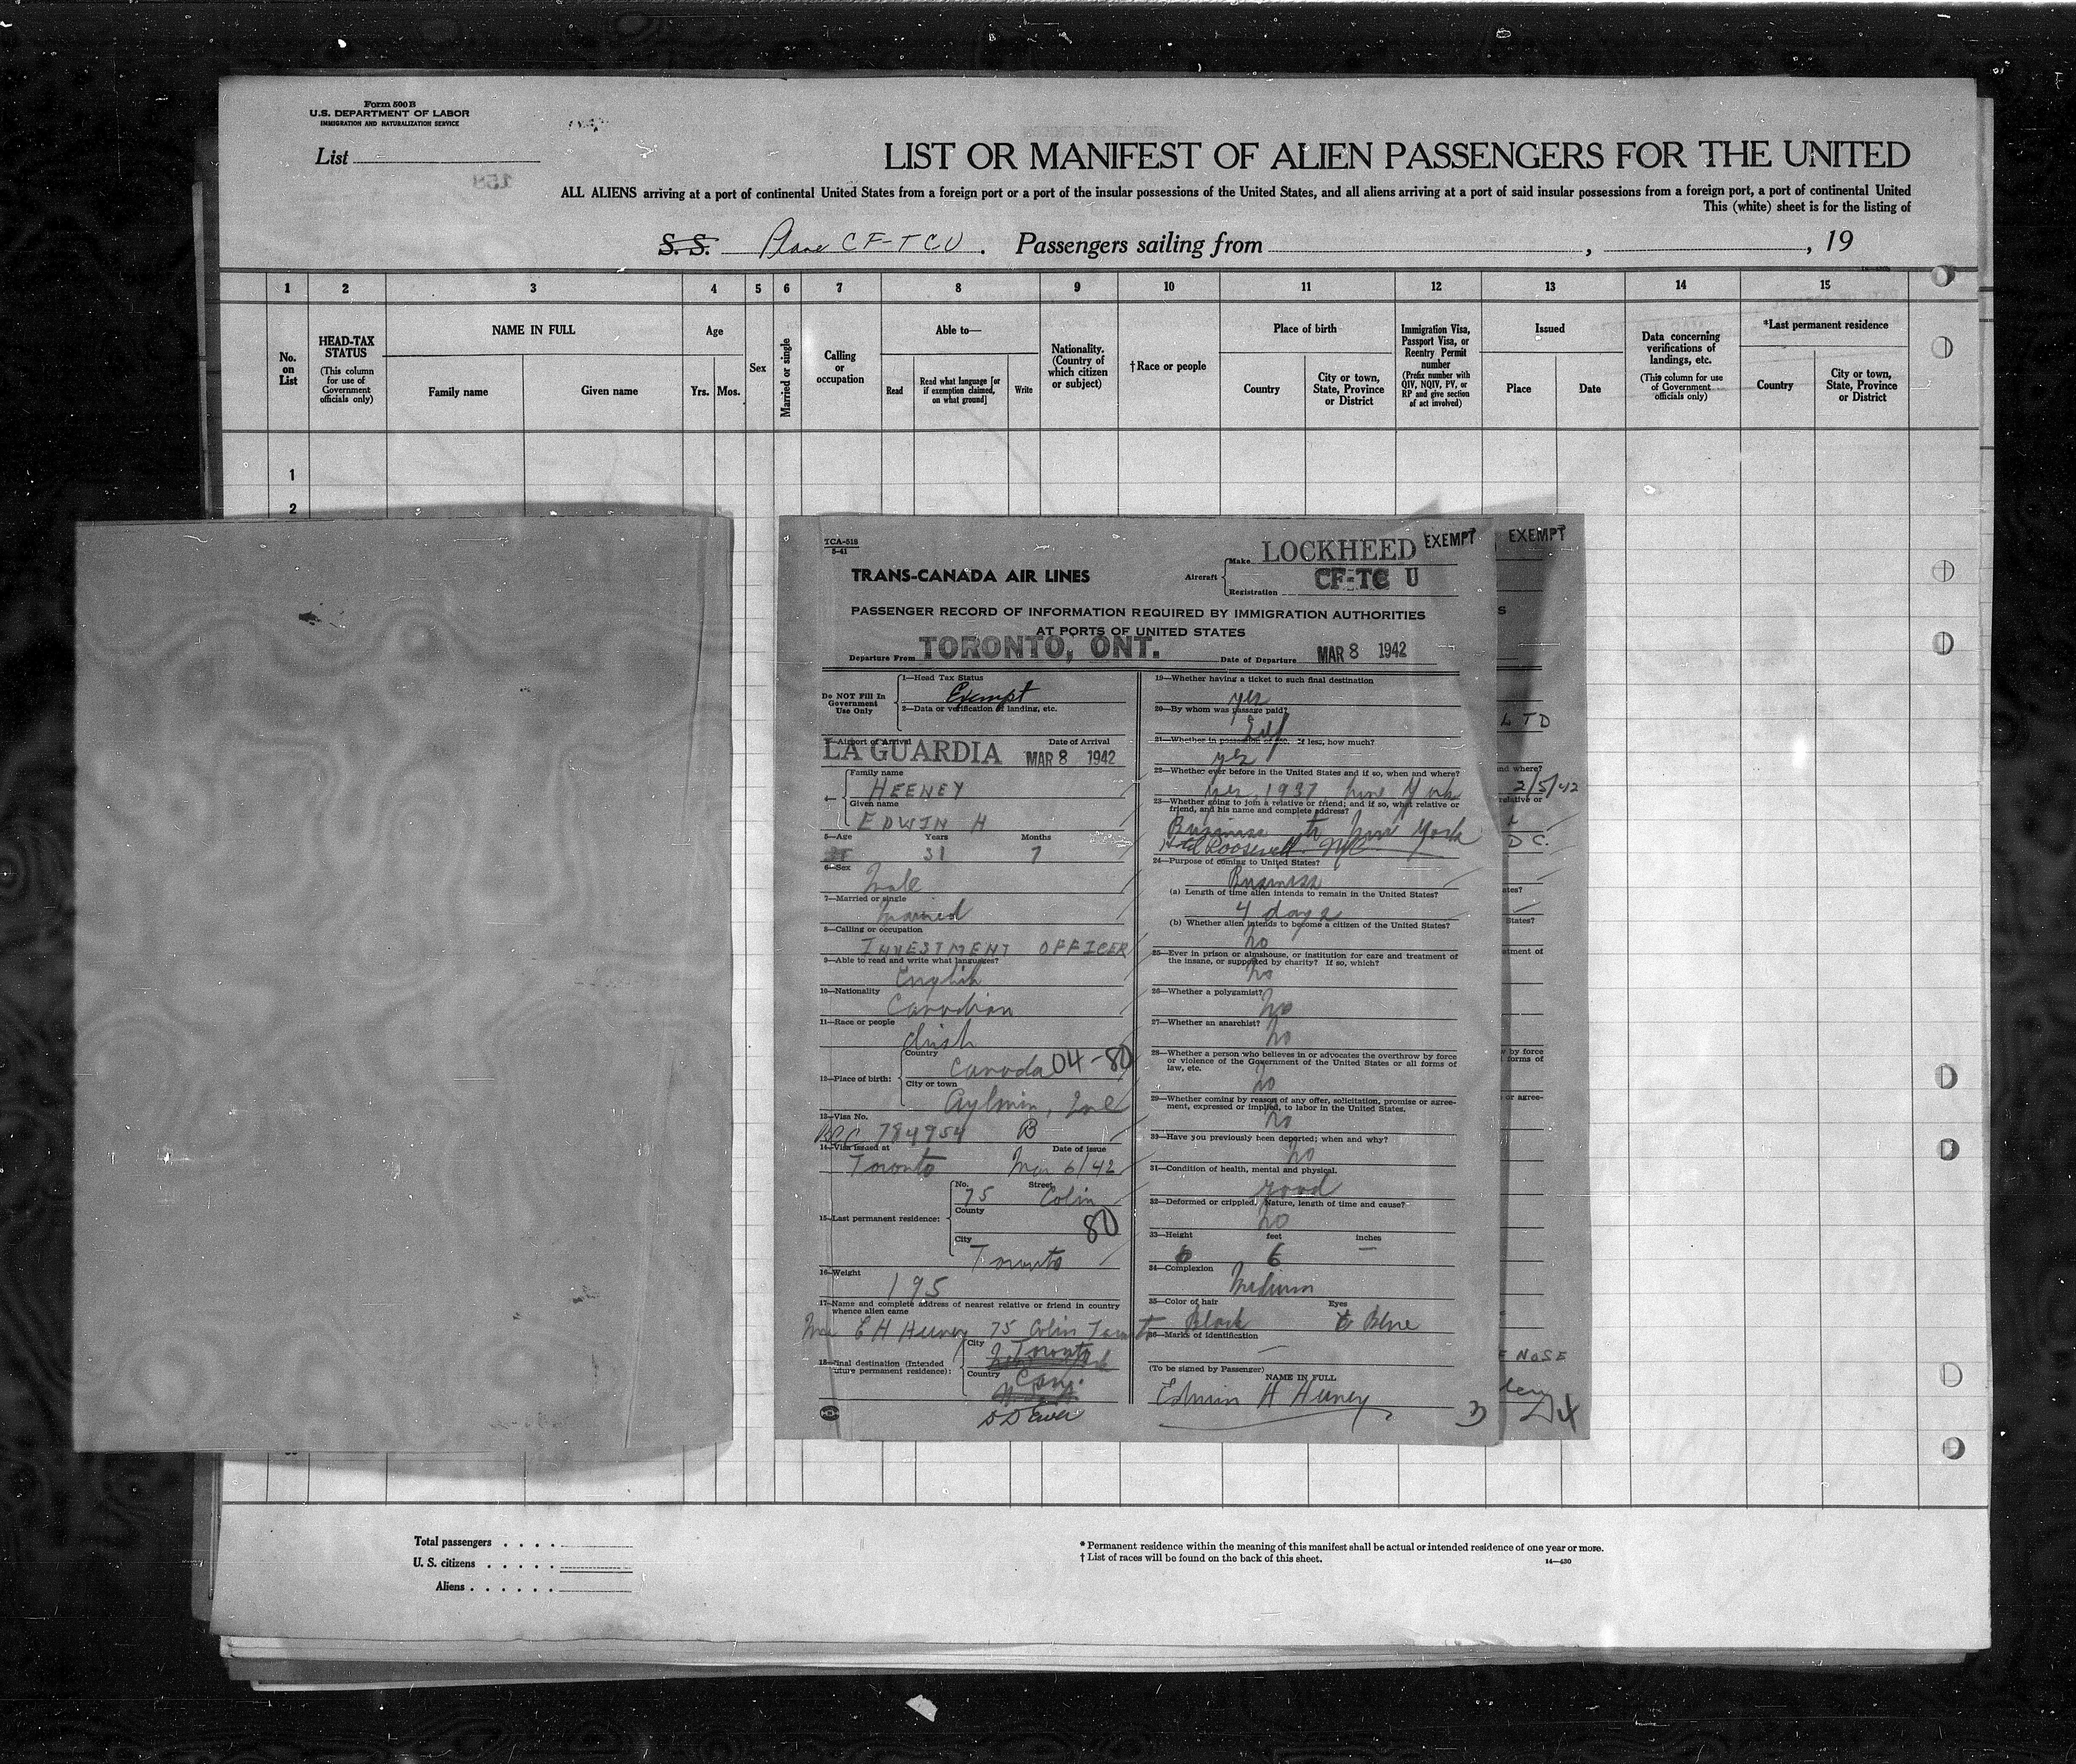 Form 500 B
U.S. DEPARTMENT OF LABOR
IMMIGRATION AND NATURALIZATION SERVICE
List
LIST OR MANIFEST OF ALIEN PASSENGERS FOR THE UNITED
ALL ALIENS arriving at a port of continental United States from a foreign port or a port of the insular possessions of the United States, and all aliens arriving at a port of said insular possessions from a foreign port, a port of continental United
This (white) sheet is for the listing of
S. S. Plane CF-TCU. Passengers sailing from , , 19
1 2 3 4 5 6 7 8 9 10 11 12 13 14 15
No. on List
HEAD-TAX STATUS (This column for use of Government officials only)
NAME IN FULL
Family name Given name
Age
Yrs. Mos.
Sex
Married or single
Calling or occupation
Able to—
Read
Read what language [or if exemption claimed, on what ground]
Write
Nationality. (Country of which citizen or subject)
†Race or people
Place of birth
Country
City or town, State, Province or District
Immigration Visa, Passport Visa, or Reentry Permit number (Prefix number with QIV, NQIV, PV, or RP and give section of act involved)
Issued
Place Date
Data concerning verifications of landings, etc. (This column for use of Government officials only)
*Last permanent residence
Country
City or town, State, Province or District
1
2
TCA-518
5-41
TRANS-CANADA AIR LINES
Aircraft
Make LOCKHEED EXEMPT
Registration CF-TC U
PASSENGER RECORD OF INFORMATION REQUIRED BY IMMIGRATION AUTHORITIES
AT PORTS OF UNITED STATES
Departure From TORONTO, ONT. Date of Departure MAR 8 1942
Do NOT Fill In Government Use Only
1—Head Tax Status
Exempt
2—Data or verification of landing, etc.
3—Airport of Arrival Date of Arrival
LA GUARDIA MAR 8 1942
4—
Family name
HEENEY
Given name
EDWIN H
5—Age Years Months
31 7
6—Sex
Male
7—Married or single
Married
8—Calling or occupation
INVESTMENT OFFICER
9—Able to read and write what languages?
English
10—Nationality
Canadian
11—Race or people
Irish
12—Place of birth:
Country
Canada 04-80
City or town
Aylmer,
13—Visa No.
784954 B
14—Visa issued at Date of issue
Toronto Mar 6/42
15—Last permanent residence:
No. Street
75 Colin
County
80
City
Toronto
16—Weight
195
17—Name and complete address of nearest relative or friend in country whence alien came
Mrs E H Heeney 75 Colin Toronto
18—Final destination (Intended future permanent residence):
City
Toronto
Country
Can.
19—Whether having a ticket to such final destination
yes
20—By whom was passage paid?
Self
21—Whether in possession of $50. If less, how much?
yes
22—Whether ever before in the United States and if so, when and where?
yes 1937 New York
23—Whether going to join a relative or friend; and if so, what relative or friend, and his name and complete address?
Business to New York
Hotel Roosevelt NYC
24—Purpose of coming to United States?
Business
(a) Length of time alien intends to remain in the United States?
4 days
(b) Whether alien intends to become a citizen of the United States?
no
25—Ever in prison or almshouse, or institution for care and treatment of the insane, or supported by charity? If so, which?
no
26—Whether a polygamist?
no
27—Whether an anarchist?
no
28—Whether a person who believes in or advocates the overthrow by force or violence of the Government of the United States or all forms of law, etc.
no
29—Whether coming by reason of any offer, solicitation, promise or agreement, expressed or implied, to labor in the United States.
no
30—Have you previously been deported; when and why?
no
31—Condition of health, mental and physical.
good
32—Deformed or crippled. Nature, length of time and cause?
no
33—Height feet inches
6 —
34—Complexion
Medium
35—Color of hair Eyes
Black Blue
36—Marks of identification
—
(To be signed by Passenger) NAME IN FULL
Edwin H Heeney
3
EXEMPT
S
LTD
and where?
2/5/42
relative or
D C.
ates?
States?
atment of
w by force
forms of
or agree-
E NOSE
24
Total passengers
U. S. citizens
Aliens
* Permanent residence within the meaning of this manifest shall be actual or intended residence of one year or more.
† List of races will be found on the back of this sheet.
14—430